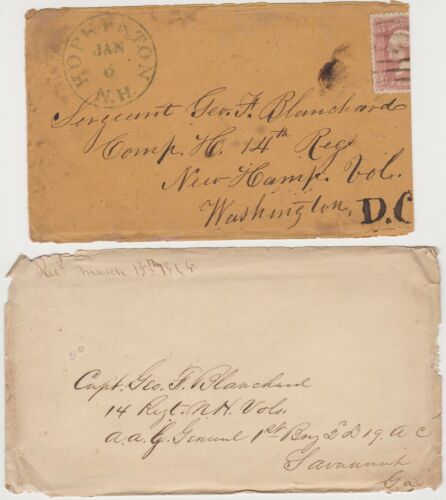 HOPKINTON
JAN
6
N.H.
Sergeant Geo. F. Blanchard
Comp. H. 14th Reg.
New Hamp. Vol.
Washington, D.C
Rec'd March 13th 1865
Capt. Geo. F. Blanchard
14 Regt. N.H. Vols.
a.a. General 1st Brig 2d D 19 A C
Savannah
Ga